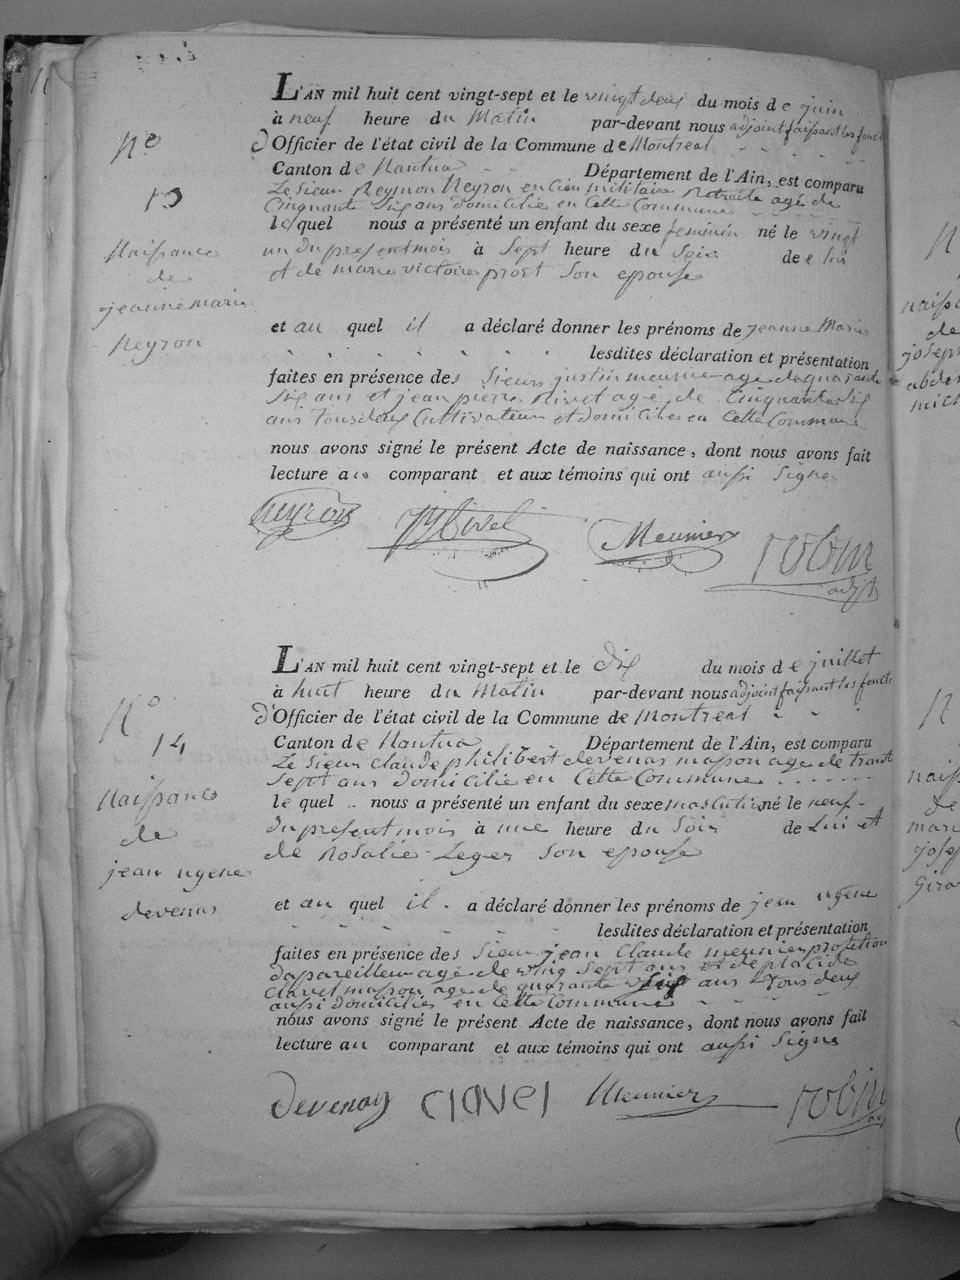 N°
13
Naissance
de
jeanne marie
Neyron
L'AN mil huit cent vingt-sept et le vingt deux du mois de juin
à neuf heure du Matin par-devant nous adjoint faisant les fonct
d'Officier de l'état civil de la Commune de Montreal
Canton de Nantua Département de l'Ain, est comparu
Le Sieur Reymon Neyron encien militaire Retraite agé de
Cinquante Six ans domicilie en Cette Commune
lequel nous a présenté un enfant du sexe feminin né le vingt
un du present mois à Sept heure du Soir de e lui
et de marie victoire prost Son epouse
et au quel il a déclaré donner les prénoms de jeanne Marie
lesdites déclaration et présentation
faites en présence des Sieurs justin meunier age de quarante
Six ans et jean pierre Rivet age de Cinquante Six
ans Tous deux Cultivateur et domicilies en Cette Commune
nous avons signé le présent Acte de naissance, dont nous avons fait
lecture au comparant et aux témoins qui ont aussi Signe
Neyron Meunier robin
adj
N°
14
Naissance
de
jean ugene
devenas
L'AN mil huit cent vingt-sept et le Dix du mois de juillet
à huit heure du Matin par-devant nous adjoint faisant les fonct
d'Officier de l'état civil de la Commune de Montreal
Canton de Nantua Département de l'Ain, est comparu
Le Sieur Claude philibert devenas masson age de trante
Sept ans domicilie en Cette Commune
le quel nous a présenté un enfant du sexe masculin né le neuf
du present mois à une heure du Soir de Lui et
de Rosalie Leger Son epouse
et au quel il a déclaré donner les prénoms de jean ugene
lesdites déclaration et présentation
faites en présence des Sieur jean Claude meunier profetion
dapareilleur age de ving Sept ans et de placide
Clavel masson age de quarante ans Tous deux
aussi domicilies en Cette Commune
nous avons signé le présent Acte de naissance, dont nous avons fait
lecture au comparant et aux témoins qui ont aussi Signe
Devenas Clavel Meunier robin